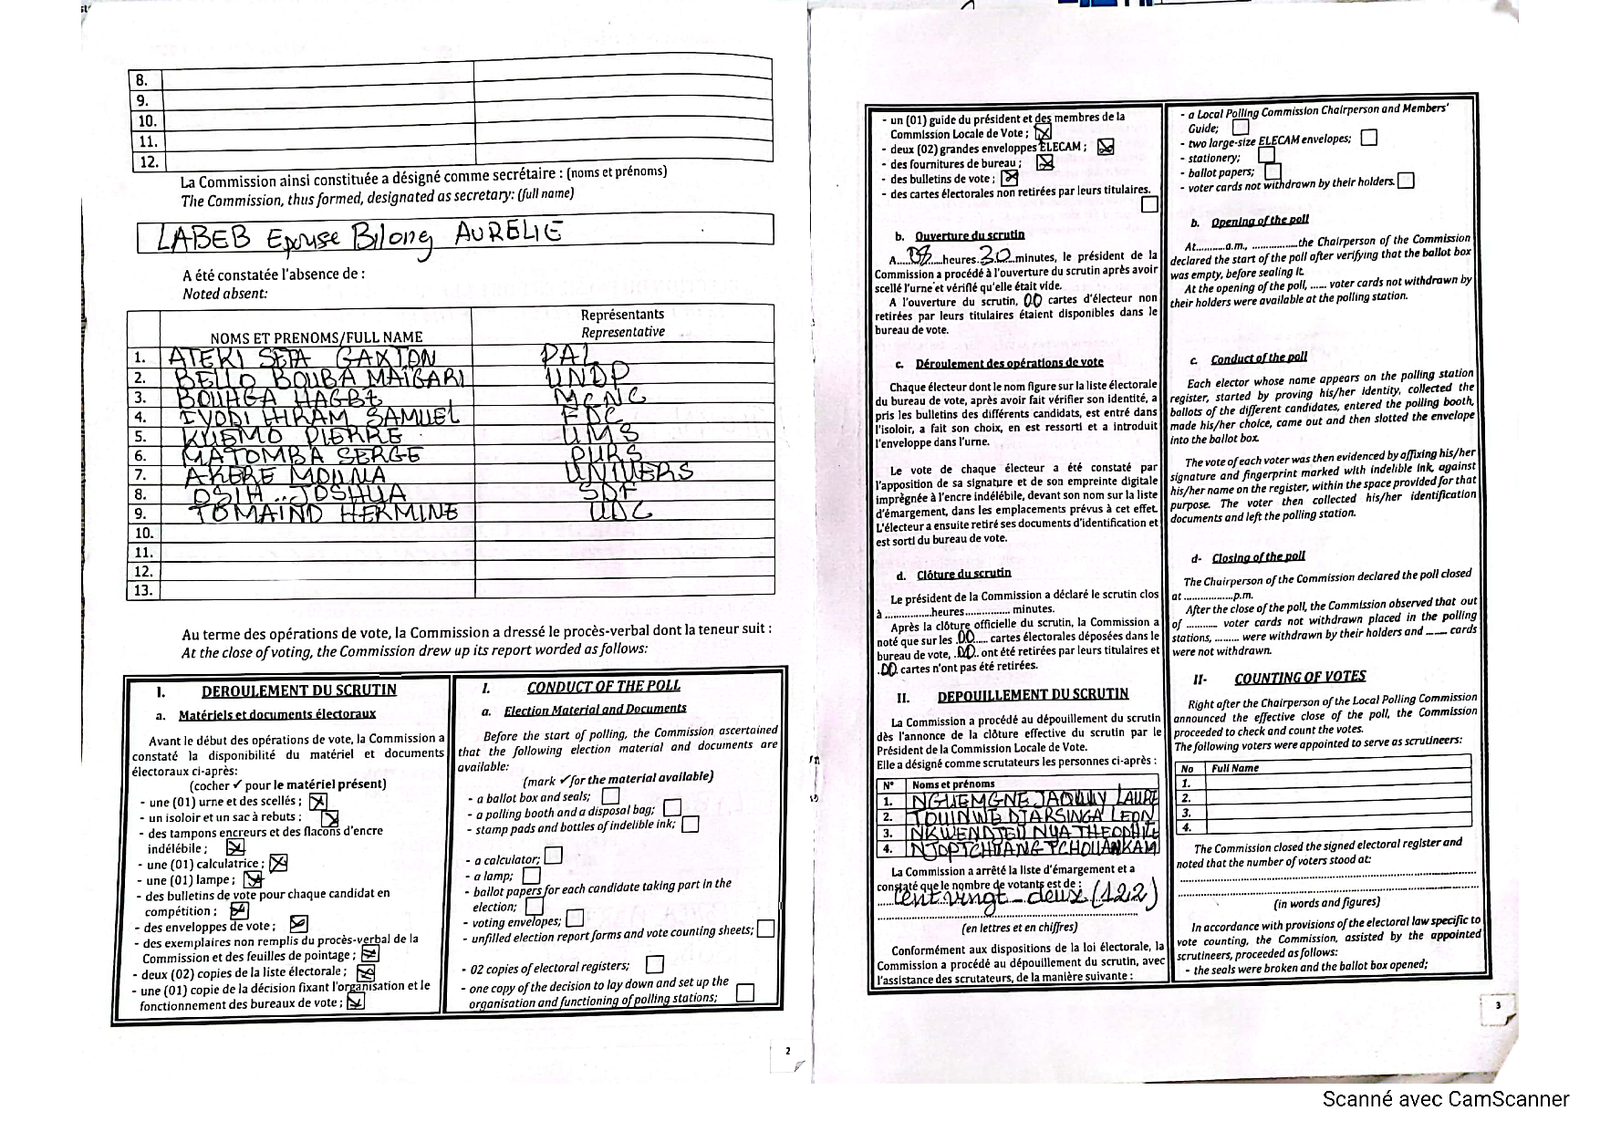 8.
9.
10.
11.
12.
La Commission ainsi constituée a désigné comme secrétaire : (noms et prénoms)
The Commission, thus formed, designated as secretary: (full name)
LABEB Epouse Bilong AURELIE
A été constatée l'absence de :
Noted absent:
NOMS ET PRENOMS/FULL NAME
Représentants
Representative
1. ATEKI SETA GAXTON PAL
2. BELLO BOUBA MAÏGARI UNDP
3. BOUHGA HAGBE MCNC
4. IYODI HIRAM SAMUEL FDC
5. KUEMO PIERRE UMS
6. MATOMBA SERGE PURS
7. AKERE MOUNA UNIVERS
8. OSIH JOSHUA SDF
9. TOMAINO HERMINE UDC
10.
11.
12.
13.
Au terme des opérations de vote, la Commission a dressé le procès-verbal dont la teneur suit :
At the close of voting, the Commission drew up its report worded as follows:
I. DEROULEMENT DU SCRUTIN
a. Matériels et documents électoraux
Avant le début des opérations de vote, la Commission a
constaté la disponibilité du matériel et documents
électoraux ci-après:
(cocher ✓ pour le matériel présent)
- une (01) urne et des scellés ;
- un isoloir et un sac à rebuts :
- des tampons encreurs et des flacons d'encre
indélébile ;
- une (01) calculatrice ;
- une (01) lampe ;
- des bulletins de vote pour chaque candidat en
compétition ;
- des enveloppes de vote ;
- des exemplaires non remplis du procès-verbal de la
Commission et des feuilles de pointage ;
- deux (02) copies de la liste électorale ;
- une (01) copie de la décision fixant l'organisation et le
fonctionnement des bureaux de vote ;
I. CONDUCT OF THE POLL
a. Election Material and Documents
Before the start of polling, the Commission ascertained
that the following election material and documents are
available:
(mark ✓ for the material available)
- a ballot box and seals;
- a polling booth and a disposal bag;
- stamp pads and bottles of indelible ink;
- a calculator;
- a lamp;
- ballot papers for each candidate taking part in the
election;
- voting envelopes;
- unfilled election report forms and vote counting sheets;
- 02 copies of electoral registers;
- one copy of the decision to lay down and set up the
organisation and functioning of polling stations;
2
- un (01) guide du président et des membres de la
Commission Locale de Vote ;
- deux (02) grandes enveloppes ELECAM ;
- des fournitures de bureau ;
- des bulletins de vote ;
- des cartes électorales non retirées par leurs titulaires.
b. Ouverture du scrutin
A....08....heures.30...minutes, le président de la
Commission a procédé à l'ouverture du scrutin après avoir
scellé l'urne et vérifié qu'elle était vide.
A l'ouverture du scrutin, 00 cartes d'électeur non
retirées par leurs titulaires étaient disponibles dans le
bureau de vote.
c. Déroulement des opérations de vote
Chaque électeur dont le nom figure sur la liste électorale
du bureau de vote, après avoir fait vérifier son identité, a
pris les bulletins des différents candidats, est entré dans
l'isoloir, a fait son choix, en est ressorti et a introduit
l'enveloppe dans l'urne.
Le vote de chaque électeur a été constaté par
l'apposition de sa signature et de son empreinte digitale
imprégnée à l'encre indélébile, devant son nom sur la liste
d'émargement, dans les emplacements prévus à cet effet.
L'électeur a ensuite retiré ses documents d'identification et
est sorti du bureau de vote.
d. Clôture du scrutin
Le président de la Commission a déclaré le scrutin clos
à ...............heures............... minutes.
Après la clôture officielle du scrutin, la Commission a
noté que sur les .00.... cartes électorales déposées dans le
bureau de vote, .00.. ont été retirées par leurs titulaires et
.00 cartes n'ont pas été retirées.
II. DEPOUILLEMENT DU SCRUTIN
La Commission a procédé au dépouillement du scrutin
dès l'annonce de la clôture effective du scrutin par le
Président de la Commission Locale de Vote.
Elle a désigné comme scrutateurs les personnes ci-après :
N° Noms et prénoms
1. NGUEMGNE LAURE
2. TOUINWE DJARSINGA LEON
3. NKWENDJEU NYA THEOPHILE
4. NJOPTCHUANG TCHOUANKAM
La Commission a arrêté la liste d'émargement et a
constaté que le nombre de votants est de :
Cent vingt-deux (122)
(en lettres et en chiffres)
Conformément aux dispositions de la loi électorale, la
Commission a procédé au dépouillement du scrutin, avec
l'assistance des scrutateurs, de la manière suivante :
- a Local Polling Commission Chairperson and Members'
Guide;
- two large-size ELECAM envelopes;
- stationery;
- ballot papers;
- voter cards not withdrawn by their holders.
b. Opening of the poll
At...........a.m., ..................the Chairperson of the Commission
declared the start of the poll after verifying that the ballot box
was empty, before sealing it.
At the opening of the poll, ...... voter cards not withdrawn by
their holders were available at the polling station.
c. Conduct of the poll
Each elector whose name appears on the polling station
register, started by proving his/her identity, collected the
ballots of the different candidates, entered the polling booth,
made his/her choice, came out and then slotted the envelope
into the ballot box.
The vote of each voter was then evidenced by affixing his/her
signature and fingerprint marked with indelible ink, against
his/her name on the register, within the space provided for that
purpose. The voter then collected his/her identification
documents and left the polling station.
d- Closing of the poll
The Chairperson of the Commission declared the poll closed
at ..................p.m.
After the close of the poll, the Commission observed that out
of ........... voter cards not withdrawn placed in the polling
stations, ......... were withdrawn by their holders and ....... cards
were not withdrawn.
II- COUNTING OF VOTES
Right after the Chairperson of the Local Polling Commission
announced the effective close of the poll, the Commission
proceeded to check and count the votes.
The following voters were appointed to serve as scrutineers:
No Full Name
1.
2.
3.
4.
The Commission closed the signed electoral register and
noted that the number of voters stood at:
(in words and figures)
In accordance with provisions of the electoral law specific to
vote counting, the Commission, assisted by the appointed
scrutineers, proceeded as follows:
- the seals were broken and the ballot box opened;
3
Scanné avec CamScanner